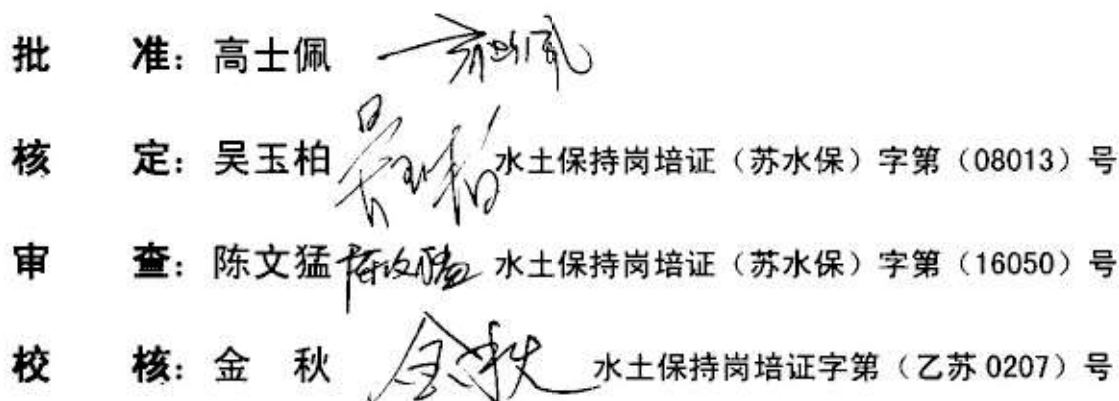 批 准：高士佩 高士佩
核 定：吴玉柏 吴玉柏 水土保持岗培证（苏水保）字第（08013）号
审 查：陈文猛 陈文猛 水土保持岗培证（苏水保）字第（16050）号
校 核：金 秋 金秋 水土保持岗培证字第（乙苏 0207）号